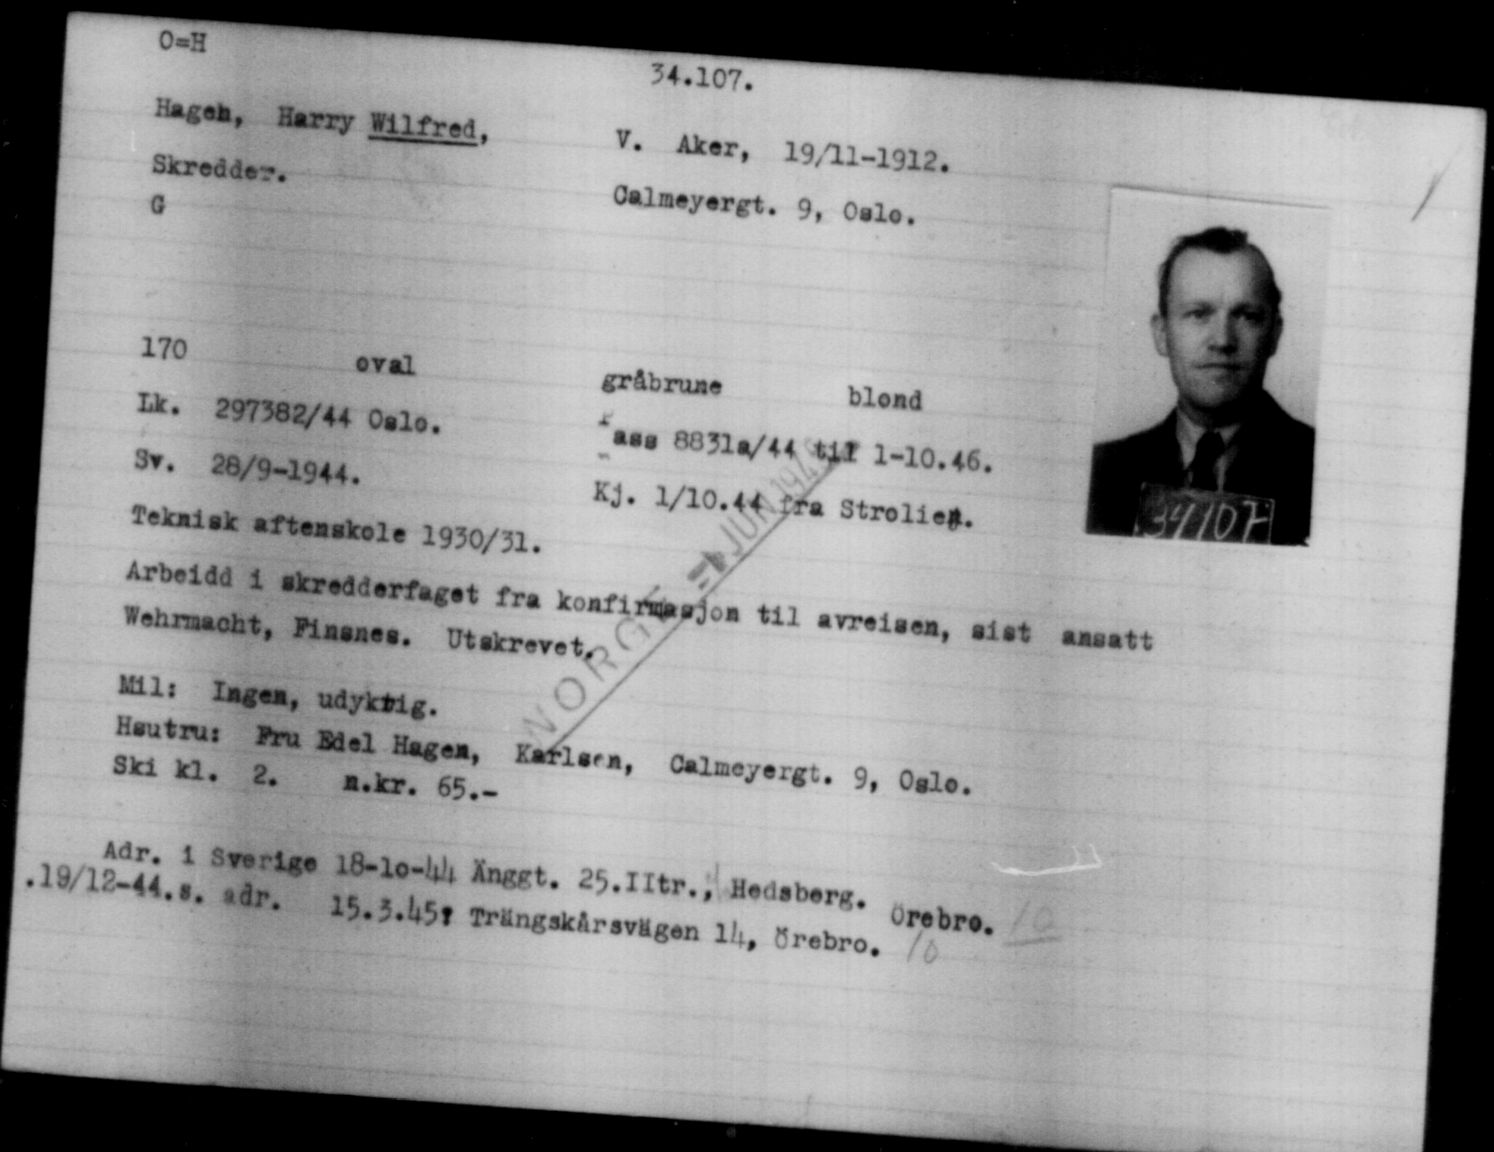 O=H
34.107.
Hagen, Harry Wilfred,
V. Aker, 19/11-1912.
Skredder.
Calmeyergt. 9, Oslo.
G
170 oval gråbrune blond
Lk. 297382/44 Oslo.
Pass 8831a/44 til 1-10.46.
Sv. 28/9-1944.
Kj. 1/10.44 fra Strolien.
34107
Teknisk aftenskole 1930/31.
Arbeidd i skredderfaget fra konfirmasjon til avreisen, sist ansatt
Wehrmacht, Finsnes. Utskrevet.
NORGE JUN 194
Mil: Ingen, udyktig.
Hsutru: Fru Edel Hagen, Karlsen, Calmeyergt. 9, Oslo.
Ski kl. 2. n.kr. 65.-
Adr. i Sverige 18-10-44 Änggt. 25.IItr., Hedsberg. Örebro. 10
.19/12-44.s. adr. 15.3.45: Trängskårsvägen 14, Örebro. 10